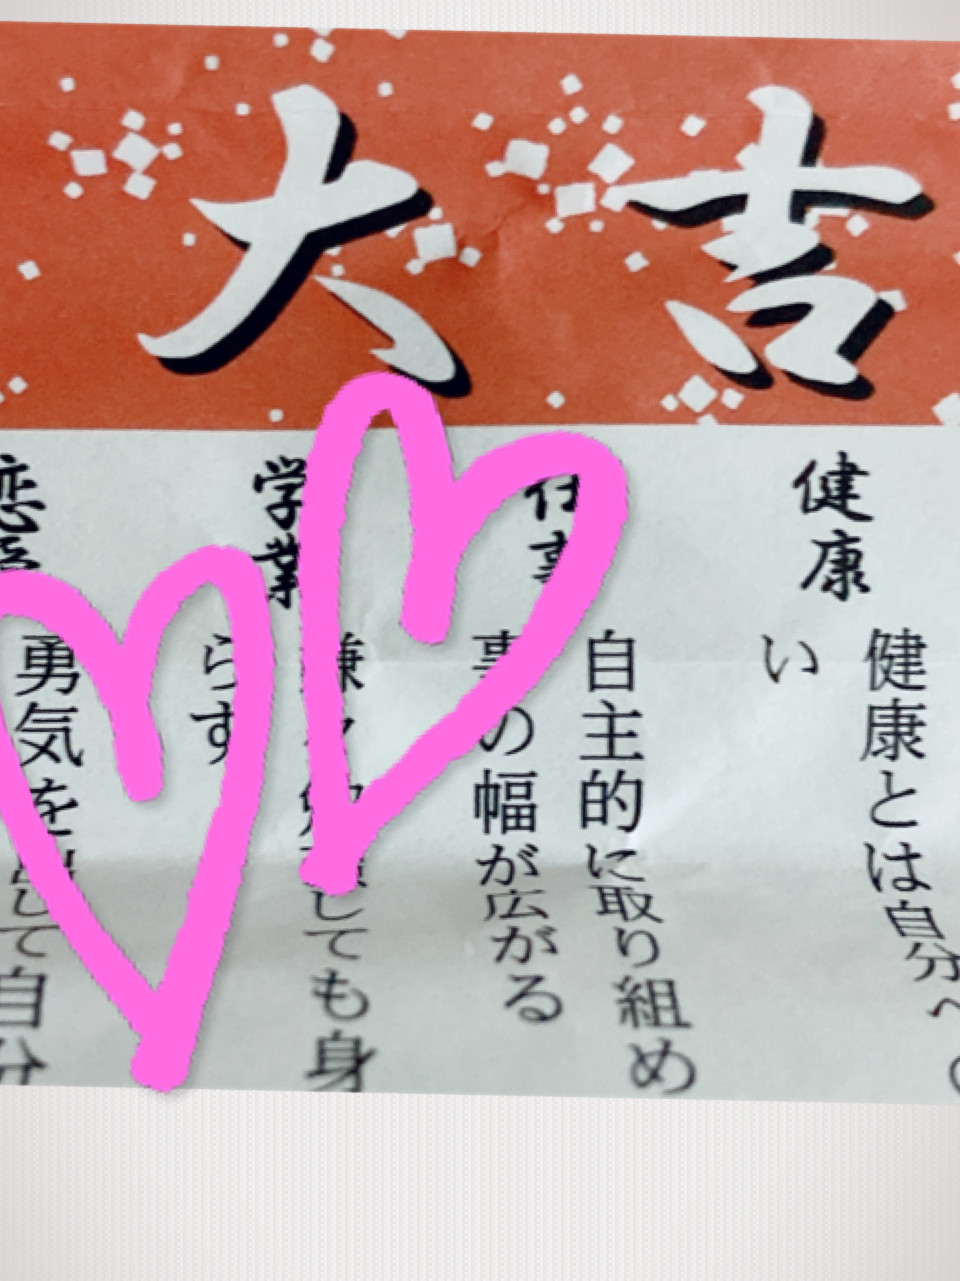 大吉
健康
健康とは自分へ
い
仕事
自主的に取り組め
事の幅が広がる
学業
しても身
らず
勇気を出して自分